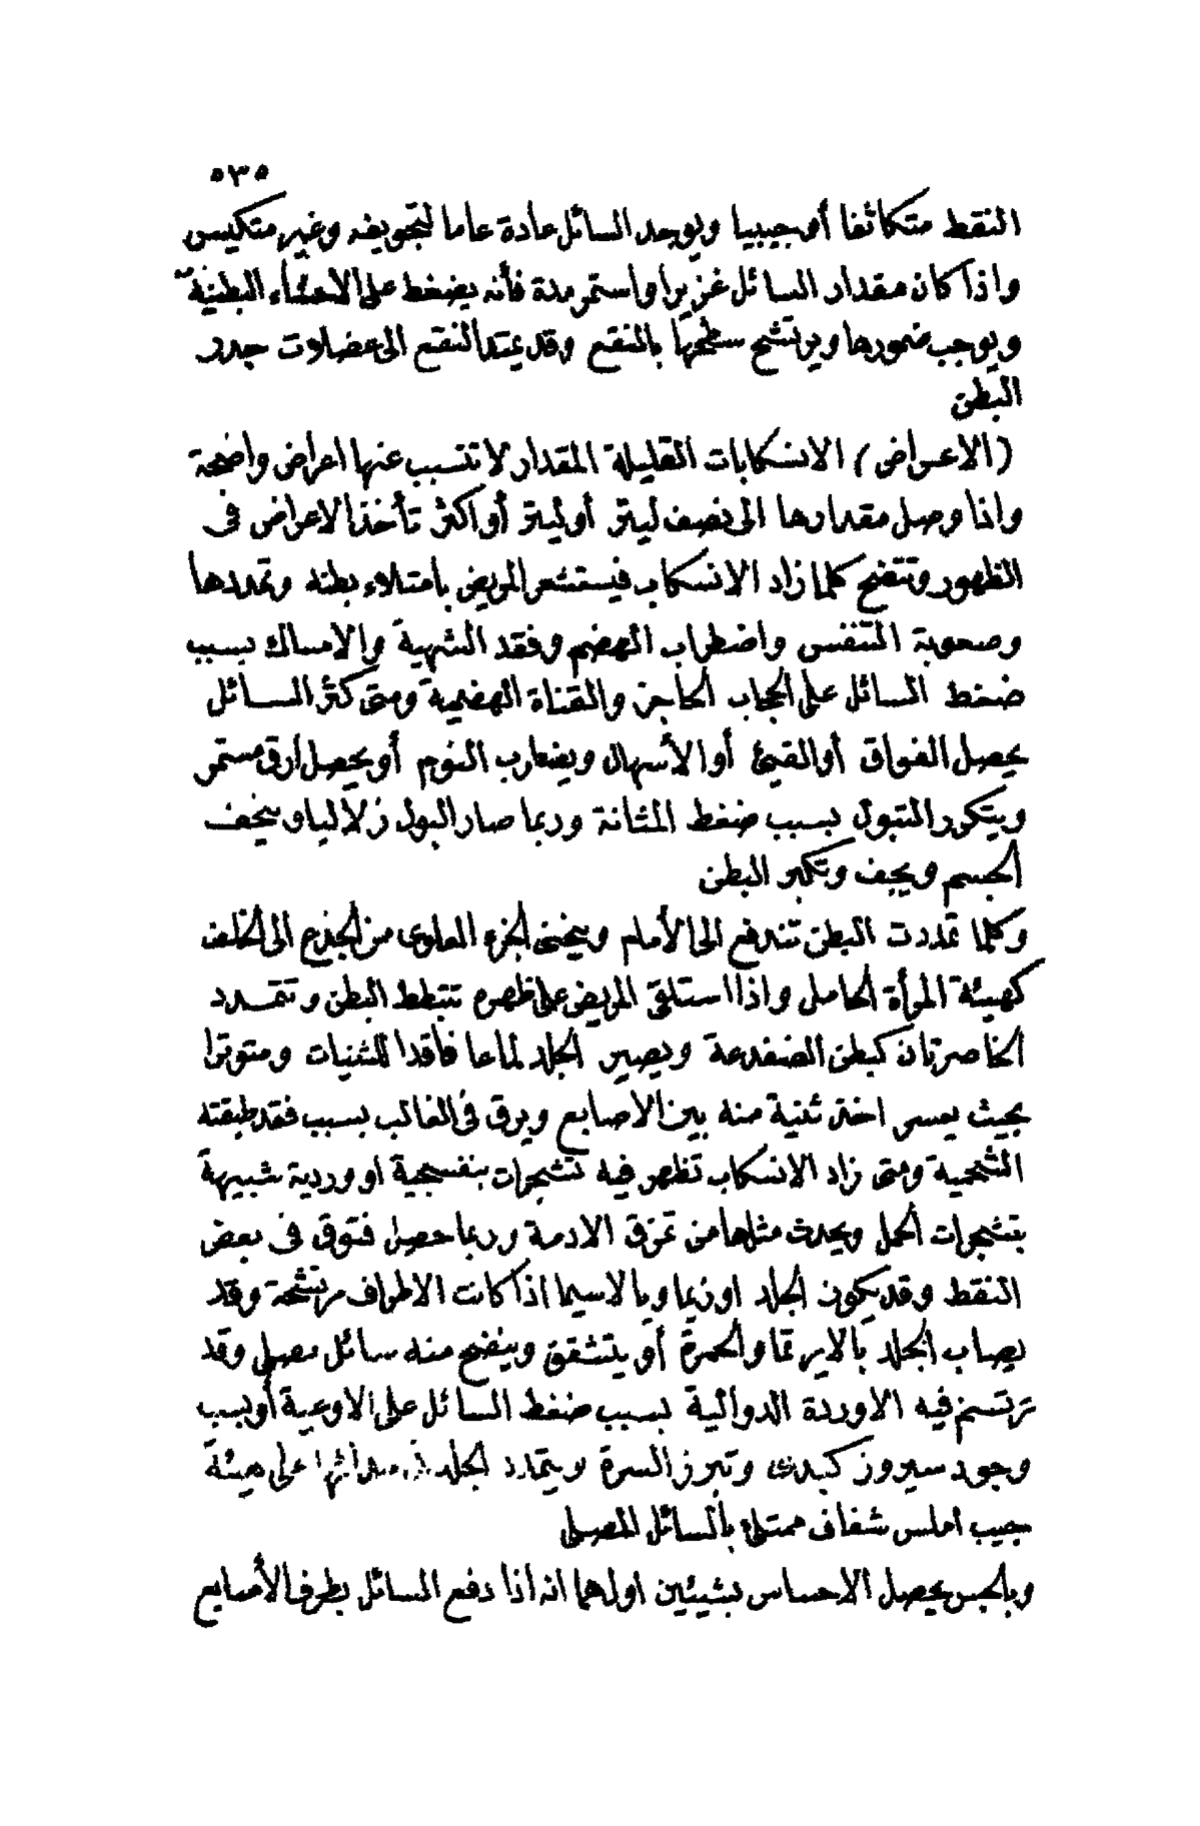 ٥٣٥
النقط متكاثفا أو جيبيا ويوجد السائل عادة عاما لتجويفه وغير متكيس
واذا كان مقدار السائل غزيرا واستمر مدة فأنه يضغط على الاحشاء البطنية
ويوجب ضمورها ويرتشح سطحها بالنقع وقد يمتد النقع الى عضلات جدر
البطن
(الاعراض) الانسكابات القليلة المقدار لا تتسبب عنها اعراض واضحة
واذا وصل مقدارها الى نصف ليتر أو ليتر أو اكثر تأخذ الاعراض فى
الظهور وتتضح كلما زاد الانسكاب فيستشعر المريض بامتلاء بطنه وتمددها
وصعوبة التنفس واضطراب الهضم وفقد الشهية والامساك بسبب
ضغط السائل على الحجاب الحاجز والقناة الهضمية ومتى كثر السائل
يحصل الفواق أو القيئ أو الأسهال ويضطرب النوم أو يحصل أرق مستمر
ويتكرر التبول بسبب ضغط المثانة وربما صار البول زلاليا وينحف
الجسم ويجف وتكبر البطن
وكلما تمددت البطن تندفع الى الأمام وينحنى الجزء العلوى من الجذع الى الخلف
كهيئة المرأة الحامل واذا استلقى المريض على ظهره تتبطط البطن وتتمدد
الخاصرتان كبطن الضفدعة ويصير الجلد لماعا فاقدا للثنيات ومتوترا
بحيث يعسر اخذ ثنية منه بين الاصابع ويرق فى الغالب بسبب فقد طبقته
الشحمية ومتى زاد الانسكاب تظهر فيه تشجرات بنفسجية او وردية شبيهة
بتشجرات الحمل ويحدث مثلها من تمزق الادمة وربما حصل فتوق فى بعض
النقط وقد يكون الجلد اوزيماويا لاسيما اذا كانت الاطراف مرتشحة وقد
يصاب الجلد بالايرتما والحمرة أو يتشقق وينضح منه سائل مصلى وقد
ترتسم فيه الاوردة الدوالية بسبب ضغط السائل على الاوعية أو بسبب
وجود سيروز كبدى وتبرز السرة ويتمدد الجلد على هيئة
جيب املس شفاف ممتلئ بالسائل المصلى
وبالجس يحصل الاحساس بشيئين اولهما انه اذا دفع السائل بطرف الأصابع